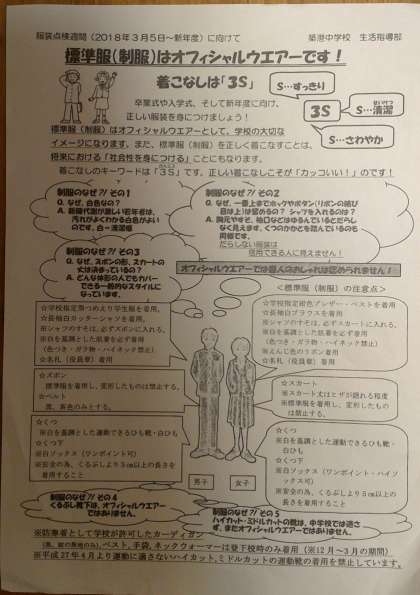 服装点検週間（2018年3月5日～新年度）に向けて　築港中学校　生活指導部
標準服（制服）はオフィシャルウエアーです！
着こなしは「3S」
S…すっきり
3S
S…清潔
S…さわやか
卒業式や入学式、そして新年度に向け、
正しい服装を身につけましょう！
標準服（制服）はオフィシャルウエアーとして、学校の大切な
イメージになります。また、標準服（制服）を正しく着こなすことは、
将来における「社会性を身につける」ことにもなります。
着こなしのキーワードは「3S」です。正しい着こなしこそが「カッコいい！」のです！
制服のなぜ?! その1
Q. なぜ、白色なの？
A. 新陳代謝が激しい若年者は、
汚れがよくわかる白色がよい
のです。白＝清潔感
制服のなぜ?! その2
Q. なぜ、一番上までホックやボタン（リボンの結び
目は上）は留めるの？ シャツを入れるのは？
A. 胸元やすそ、袖口などはゆるんでいるとだらし
なく見えます。くつのかかとを踏んでいるのも
同様です。
だらしない服装は
信用できる人に見えません！
制服のなぜ?! その3
Q. なぜ、ズボンの形、スカートの
丈は決まっているの？
A. どんな体形の人でもカバー
できる一般的なスタイルに
なっています。
オフィシャルウエアーでは個人のおしゃれは認められません！
＜標準服（制服）の注意点＞
☆学校指定黒つめえり学生服を着用。
☆長袖白カッターシャツを着用。
※シャツのすそは、必ずズボンに入れる。
※白を基調とした肌着を必ず着用
（色つき・ガラ物・ハイネック禁止）
☆名札（役員章）着用
☆学校指定紺色ブレザー・ベストを着用
☆長袖白ブラウスを着用
※シャツのすそは、必ずスカートに入れる。
※白を基調とした肌着を必ず着用
（色つき・ガラ物・ハイネック禁止）
※えんじ色のリボン着用
☆名札（役員章）着用
☆ズボン
標準服を着用し、変形したものは禁止する。
☆ベルト
黒、茶色のみとする。
☆スカート
※スカート丈はヒザが隠れる程度
※標準服を着用し、変形したもの
は禁止する。
☆くつ
※白を基調とした運動できるひも靴・白ひも
☆くつ下
※白ソックス（ワンポイント可）
※安全の為、くるぶしより5㎝以上の長さを
着用すること
☆くつ
※白を基調とした運動できるひも靴・
白ひも
☆くつ下
※白ソックス（ワンポイント・ハイソ
ックス可）
※安全の為、くるぶしより5㎝以上の
長さを着用すること。
男子
女子
制服のなぜ?! その4
くるぶし靴下は、オフィシャルウエアー
ではありません。
制服のなぜ?! その5
ハイカット・ミドルカットの靴は、中学校では適さ
ず、またオフィシャルウエアーではありません。
※防寒着として学校が許可したカーディガン
ベスト、手袋、ネックウォーマーは登下校時のみ着用（※12月～3月の期間）
※平成27年4月より運動に適さないハイカット、ミドルカットの運動靴の着用を禁止しています。